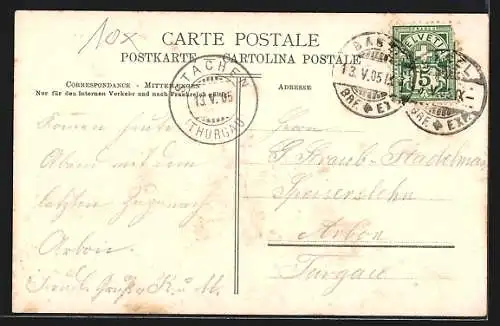 10x
CARTE POSTALE
POSTKARTE CARTOLINA POSTALE
CORRESPONDANCE - MITTEILUNGEN
Nur für das Internen Verkehr und nach Frankreich
ADRESSE
STACHEN
13.V.05
(THURGAU)
BASEL
13.V.05
BRF. EXP.
BRF. EXP.
HELVETIA
5
Kommen heute
Abend mit dem
letzten Zuge nach
Arbon
Fredl. Gruß K. u. M.
Herrn
S. Straub-Stadelman
Speiserslehn
Arbon
Turgau